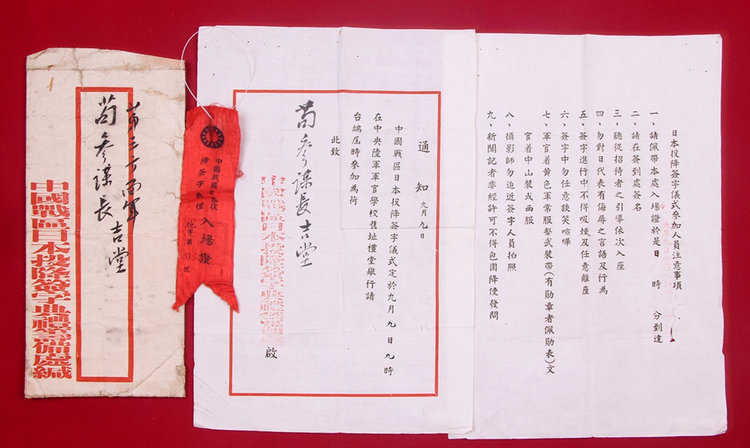 第三方面軍
苟參謀長吉堂
中國戰區日本投降簽字典禮籌備處緘
中國戰區日本投
降簽字典禮
入場證
通知 九月九日
中國戰區日本投降簽字儀式定於九月九日九時
在中央陸軍軍官學校舊址禮堂舉行請
台端屆時參加為荷
此致
苟參謀長吉堂
中國戰區日本投降簽字典禮籌備處
啟
日本投降簽字儀式參加人員注意事項
一、請佩帶本處入場證於是日 時 分到達
二、請在簽到處簽名
三、聽從招待者之引導依次入座
四、勿對日代表有侮辱之言語及行為
五、簽字進行中不得吸煙及任意離座
六、簽字中勿任意談笑喧嘩
七、軍官着黃色軍常服整武裝帶(有勛章者佩勛表)文
官着中山裝或西服
八、攝影師勿迫近簽字人員拍照
九、新聞記者非經許可不得包圍降使發問